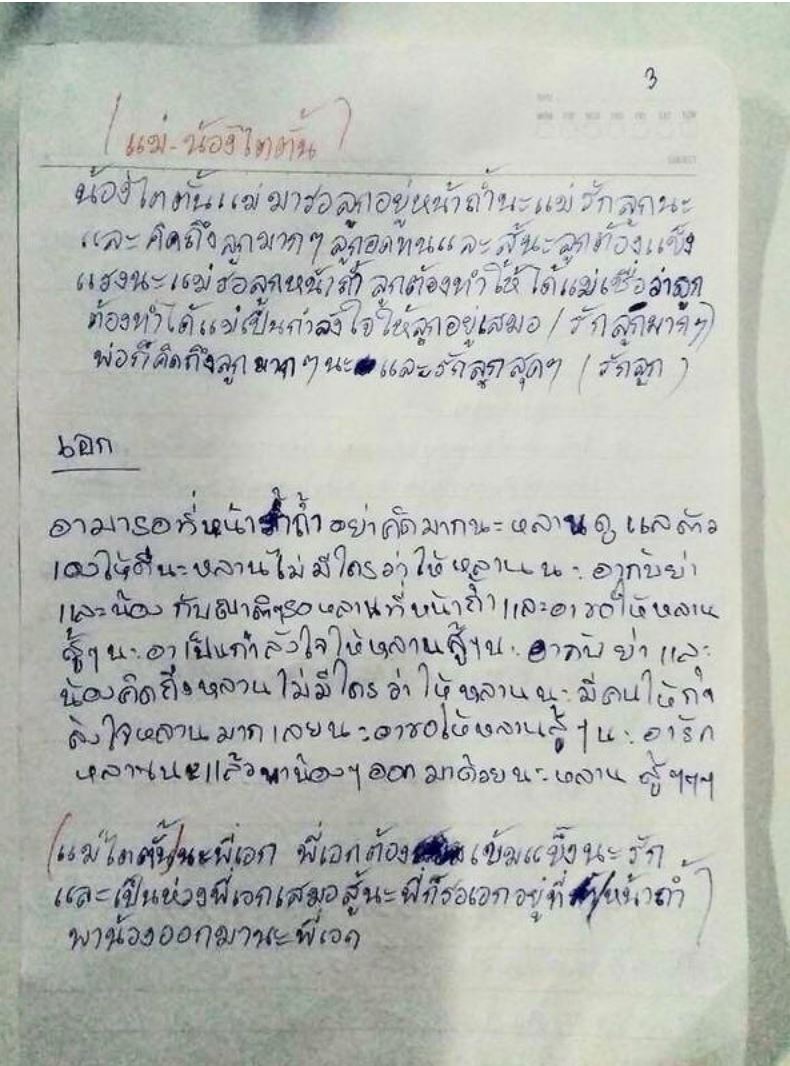 3
(แม่-น้องไตตั้น)
น้องไตตั้นแม่มารอลูกอยู่หน้าถ้ำนะแม่รักลูกนะ
และคิดถึงลูกมากๆลูกอดทนและสู้นะลูกต้องแข็ง
แรงนะแม่รอลูกหน้าถ้ำ ลูกต้องทำให้ได้แม่เชื่อว่าลูก
ต้องทำได้แม่เป็นกำลังใจให้ลูกอยู่เสมอ (รักลูกมากๆ)
พ่อก็คิดถึงลูกมากๆนะ และรักลูกสุดๆ (รักลูก)
เอก
อามารอที่หน้าถ้ำ อย่าคิดมากนะหลานดูแลตัว
เองให้ดีนะหลานไม่มีใครว่าให้หลานนะ อากับย่า
และน้อง กับญาติๆรอหลานที่หน้าถ้ำและอาขอให้หลาน
สู้ๆนะอาเป็นกำลังใจให้หลานสู้ๆนะ อากับย่าและ
น้องคิดถึงหลานไม่มีใครว่าให้หลานนะมีคนให้กำ
ลังใจหลานมากเลยนะอาขอให้หลานสู้ๆนะ อารัก
หลานนะแล้วพาน้องๆออกมาด้วยนะหลาน สู้ๆๆๆ
(แม่ไตตั้น)นะพี่เอก พี่เอกต้อง เข้มแข็งนะรัก
และเป็นห่วงพี่เอกเสมอสู้นะพี่ก็รอเอกอยู่ที่ หน้าถ้ำ)
พาน้องออกมานะพี่เอก